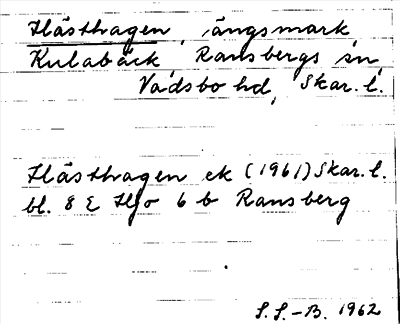 Hästhagen, ängsmark,
Kulabäck Ransbergs sn,
Vadsbo hd, Skar. l.
Hästhagen ek (1961) Skar. l.
bl. 8 E Hjo 6 b Ransberg
S.S.-B. 1962